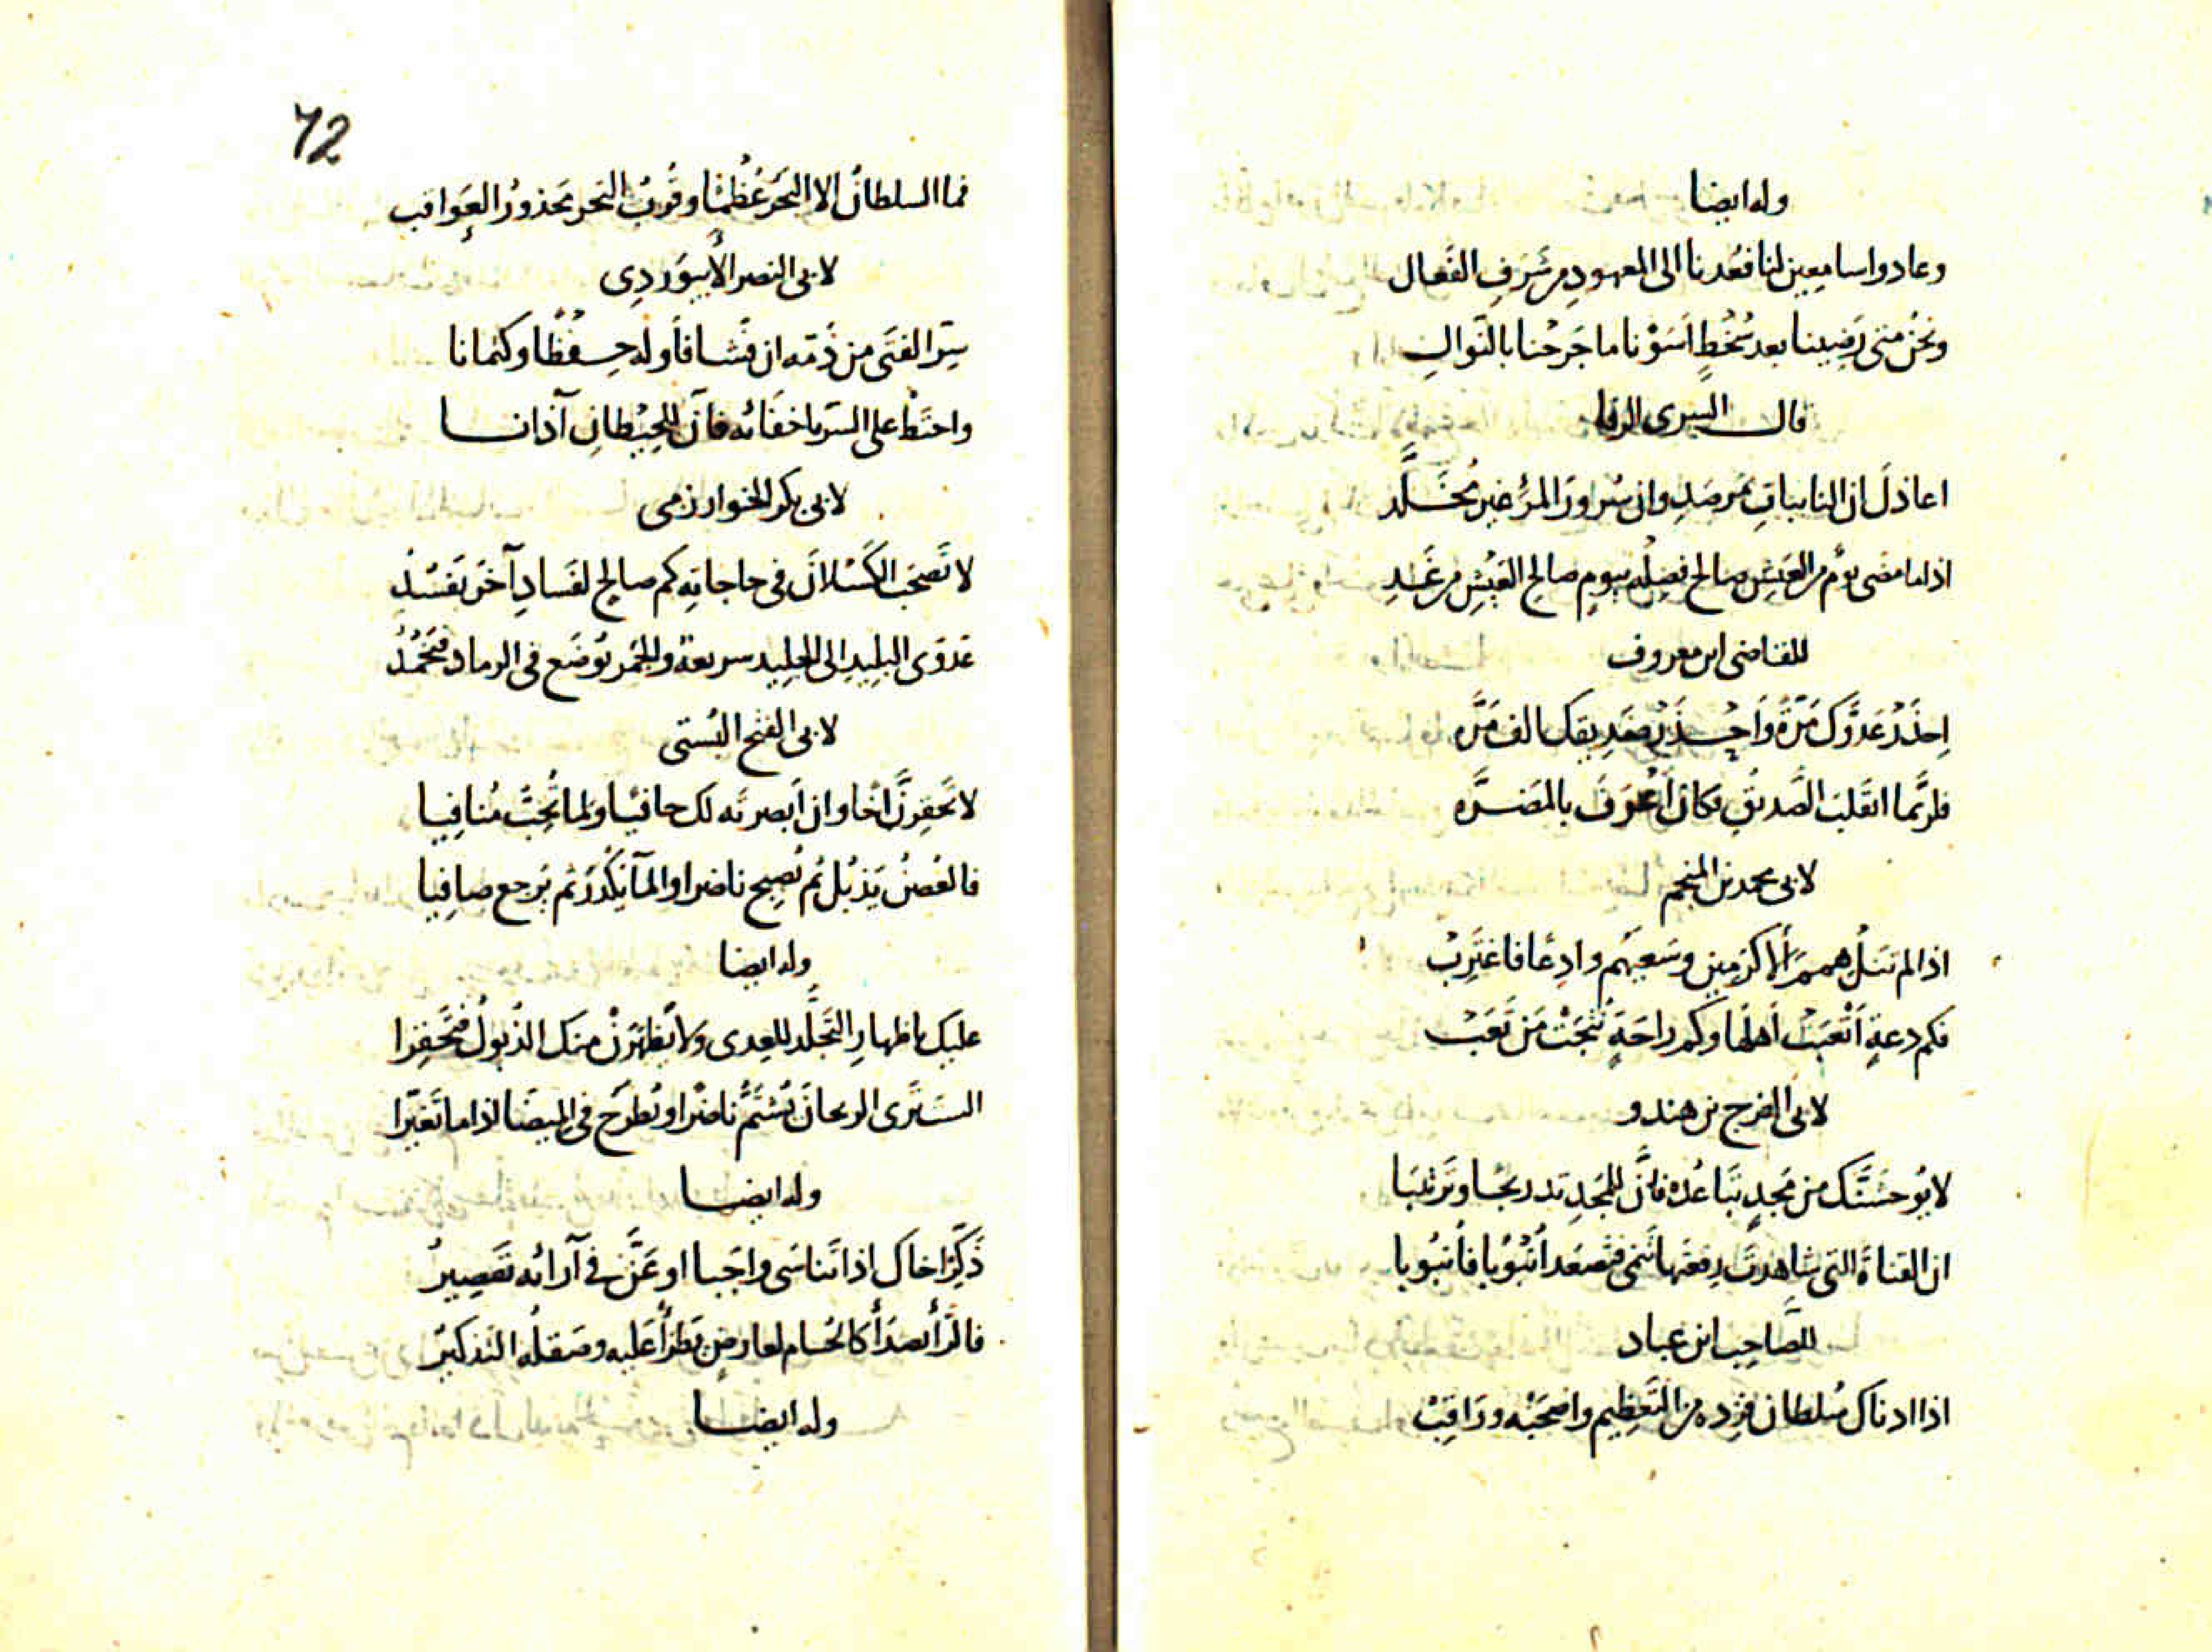 وله ايضا
وعادوا سامعين لنا فعُدنا الى المعهودِ من شَرَفِ الفَعال
ونحن متى رَضِينا بعد سُخْطٍ اَسَوْنا ما جَرَحْنا بالنَوالِ
قال السرى الرفا
اعاذلَ ان النايباتِ بمرصَدِ وان سُرورَ المرْءِ غير مُخَلَّد
اذا ما مضى يومٌ من العَيشِ صالح فصِلْه بيومٍ صالحِ العَيْشِ من غَدِ
للقاضى ابن معروف
اِحذَرْ عَدوَّكَ مَرَّةً وَاحْذَرْ صَدِيقك الف مَرَّه
فلربَّما انقَلبَ الصَّديق فكان أَعْرَفَ بالمَضَرَّه
لابى محمد بن المنجم
اذا لم تنلْ همم الأكرَمين وسَعيَهم وادِعًا فاغتَرِبْ
فكم دعةٍ اَتْعَبَتْ أهلَها وكم راحَةٍ نُتِجَتْ مَن تَعَبْ
لابى الفرج بن هندو
لا يُوحشَنَّك من مَجدٍ تَباعُده فانَّ للمَجدِ تدريجًا وتَرتيبَا
ان القناةَ التى شاهدتَ رِفعتَها تنمى فتصعَد أُنْبُوبًا فأُنبُوبا
للصَّاحِب ابن عباد
اذا ادناك سُلطان فزِده من التَعظِيم واصحَبْه ورَاقِبْ
72
فما السلطانُ الا البَحرُ عُظْمًا وقُربُ البَحر مَحذورُ العَواقب
لابى النصر الأبيوَردِى
سِرّ الفتَى من ذَمّه ان فَشا فأَوله حِفظًا وكتمانا
واحتَطْ على السّر باخفَائه فانّ للحِيْطانِ آذانا
لابى بكر الخوارزمى
لا تَصحَبِ الكَسْلانَ فى حاجاتِه كم صالحٍ لفَسادِ آخَرَ يَفسُدُ
عَدوَى البليدِ الى الجليد سريعة والجمر يُوضَع فى الرماد فيَخْمُدُ
لابى الفتح البُستى
لا تَحقِرنَّ اخا وان اَبصرتَه لك جافيًا ولما تُحِبّ مُنافِيا
فالغُصنُ يَذبُل ثم يُصبِح ناضرا والمآ يَكْدرُ ثم يَرجع صافِيا
وله ايضا
عليك باظهارِ التَجَلّد للعِدى ولا يُظهَرنْ منك الذُبولُ فتُحقَرا
الستَ تَرى الريحانَ يُشتَمُّ ناضرًا ويُطرَح فى الميضَا اذا ما تَغَيّرا
وله ايضا
ذَكِّرْ اخاك اذا تَناسَى واجَبا او عَنَّ فى آرائه تقصيرُ
فالرَأى يَصدَأُ كالحُسام لعارضٍ يَطرَأُ عَليه وصَقلُه التَذكيرُ
وله ايضا